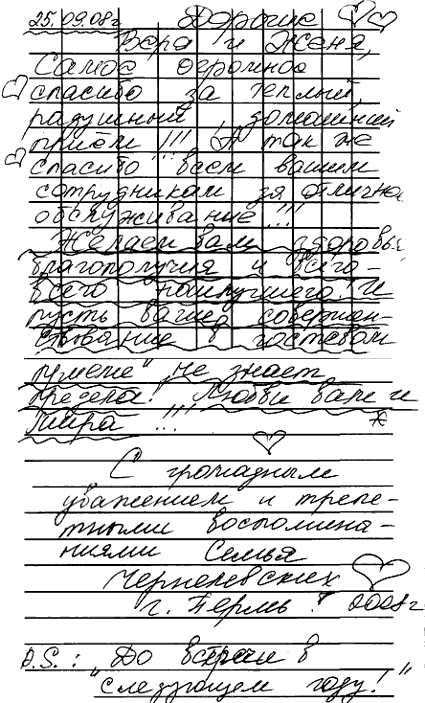 25.09.08г Дорогие
Вера и Женя,
Самое огромное
спасибо за теплый,
радушный, домашний
приём!!! А так же
спасибо всем вашим
сотрудникам за отличное
обслуживание!!!
Желаем вам здоровья
благополучия и всего-
всего наилучшего! И
пусть ваше совершен-
ствование в "гостевом
умение" не знает
предела! Любви вам и
Мира!!!
С громадным
уважением и трепе-
тными воспомина-
ниями Семья
г. Пермь! 2008г
P.S.: "До встречи в
следующем году!"